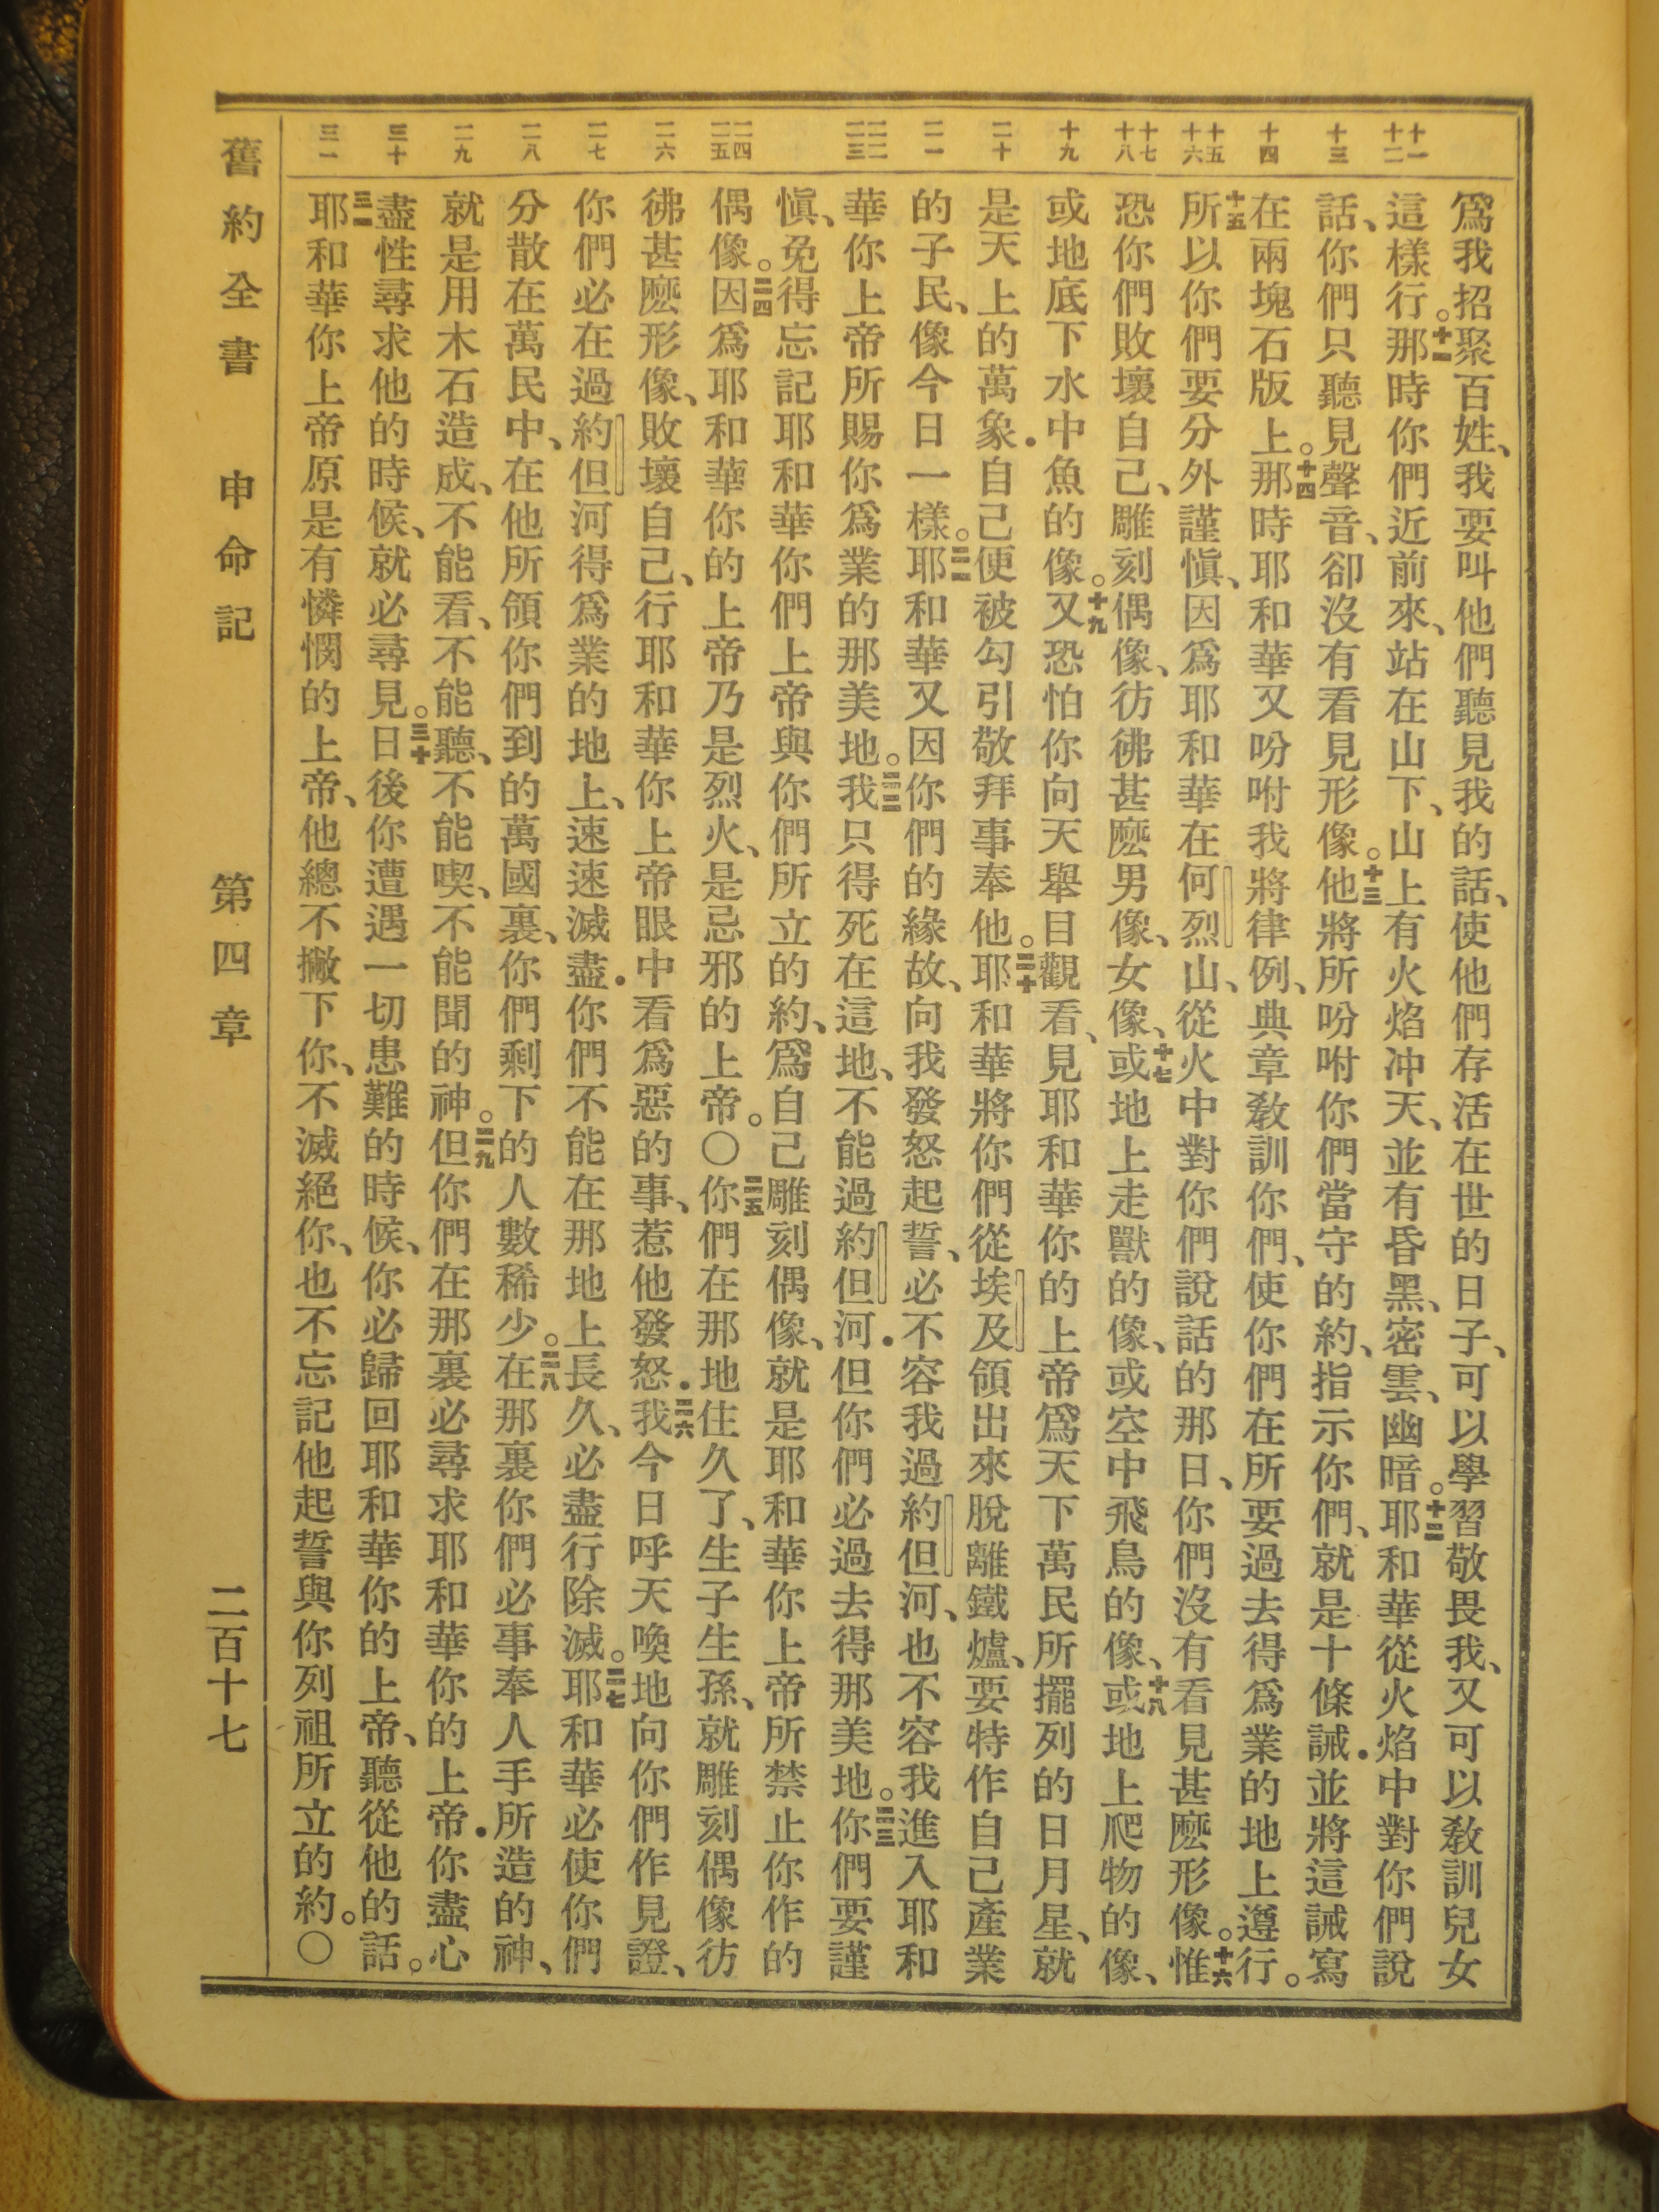 十一 十二 十三 十四 十五 十六 十七 十八 十九 二十 二一 二二 二三 二四 二五 二六 二七 二八 二九 三十 三一
爲我招聚百姓、我要叫他們聽見我的話、使他們存活在世的日子、可以學習敬畏我、又可以敎訓兒女
這樣行。十一那時你們近前來、站在山下、山上有火焰冲天、並有昏黑、密雲、幽暗。十二耶和華從火焰中對你們說
話、你們只聽見聲音、卻沒有看見形像。十三他將所吩咐你們當守的約、指示你們、就是十條誡．並將這誡寫
在兩塊石版上。十四那時耶和華又吩咐我將律例、典章敎訓你們、使你們在所要過去得爲業的地上遵行。
十五所以你們要分外謹愼、因爲耶和華在何烈山、從火中對你們說話的那日、你們沒有看見甚麽形像。十六惟
恐你們敗壞自己、雕刻偶像、彷彿甚麽男像、女像、十七或地上走獸的像、或空中飛鳥的像、十八或地上爬物的像、
或地底下水中魚的像。十九又恐怕你向天舉目觀看、見耶和華你的上帝爲天下萬民所擺列的日月星、就
是天上的萬象．自己便被勾引敬拜事奉他。二十耶和華將你們從埃及領出來脫離鐵爐、要特作自己產業
的子民、像今日一樣。二一耶和華又因你們的緣故、向我發怒起誓、必不容我過約但河、也不容我進入耶和
華你上帝所賜你爲業的那美地。二二我只得死在這地、不能過約但河．但你們必過去得那美地。二三你們要謹
愼、免得忘記耶和華你們上帝與你們所立的約、爲自己雕刻偶像、就是耶和華你上帝所禁止你作的
偶像。二四因爲耶和華你的上帝乃是烈火、是忌邪的上帝。〇二五你們在那地住久了、生子生孫、就雕刻偶像彷
彿甚麽形像、敗壞自己、行耶和華你上帝眼中看爲惡的事、惹他發怒．二六我今日呼天喚地向你們作見證、
你們必在過約但河得爲業的地上、速速滅盡．你們不能在那地上長久、必盡行除滅。二七耶和華必使你們
分散在萬民中、在他所領你們到的萬國裏、你們剩下的人數稀少。二八在那裏你們必事奉人手所造的神、
就是用木石造成、不能看、不能聽、不能喫、不能聞的神。二九但你們在那裏必尋求耶和華你的上帝．你盡心
盡性尋求他的時候、就必尋見。三十日後你遭遇一切患難的時候、你必歸回耶和華你的上帝、聽從他的話。
三一耶和華你上帝原是有憐憫的上帝、他總不撇下你、不滅絕你、也不忘記他起誓與你列祖所立的約。〇
舊約全書 申命記 第四章 二百十七